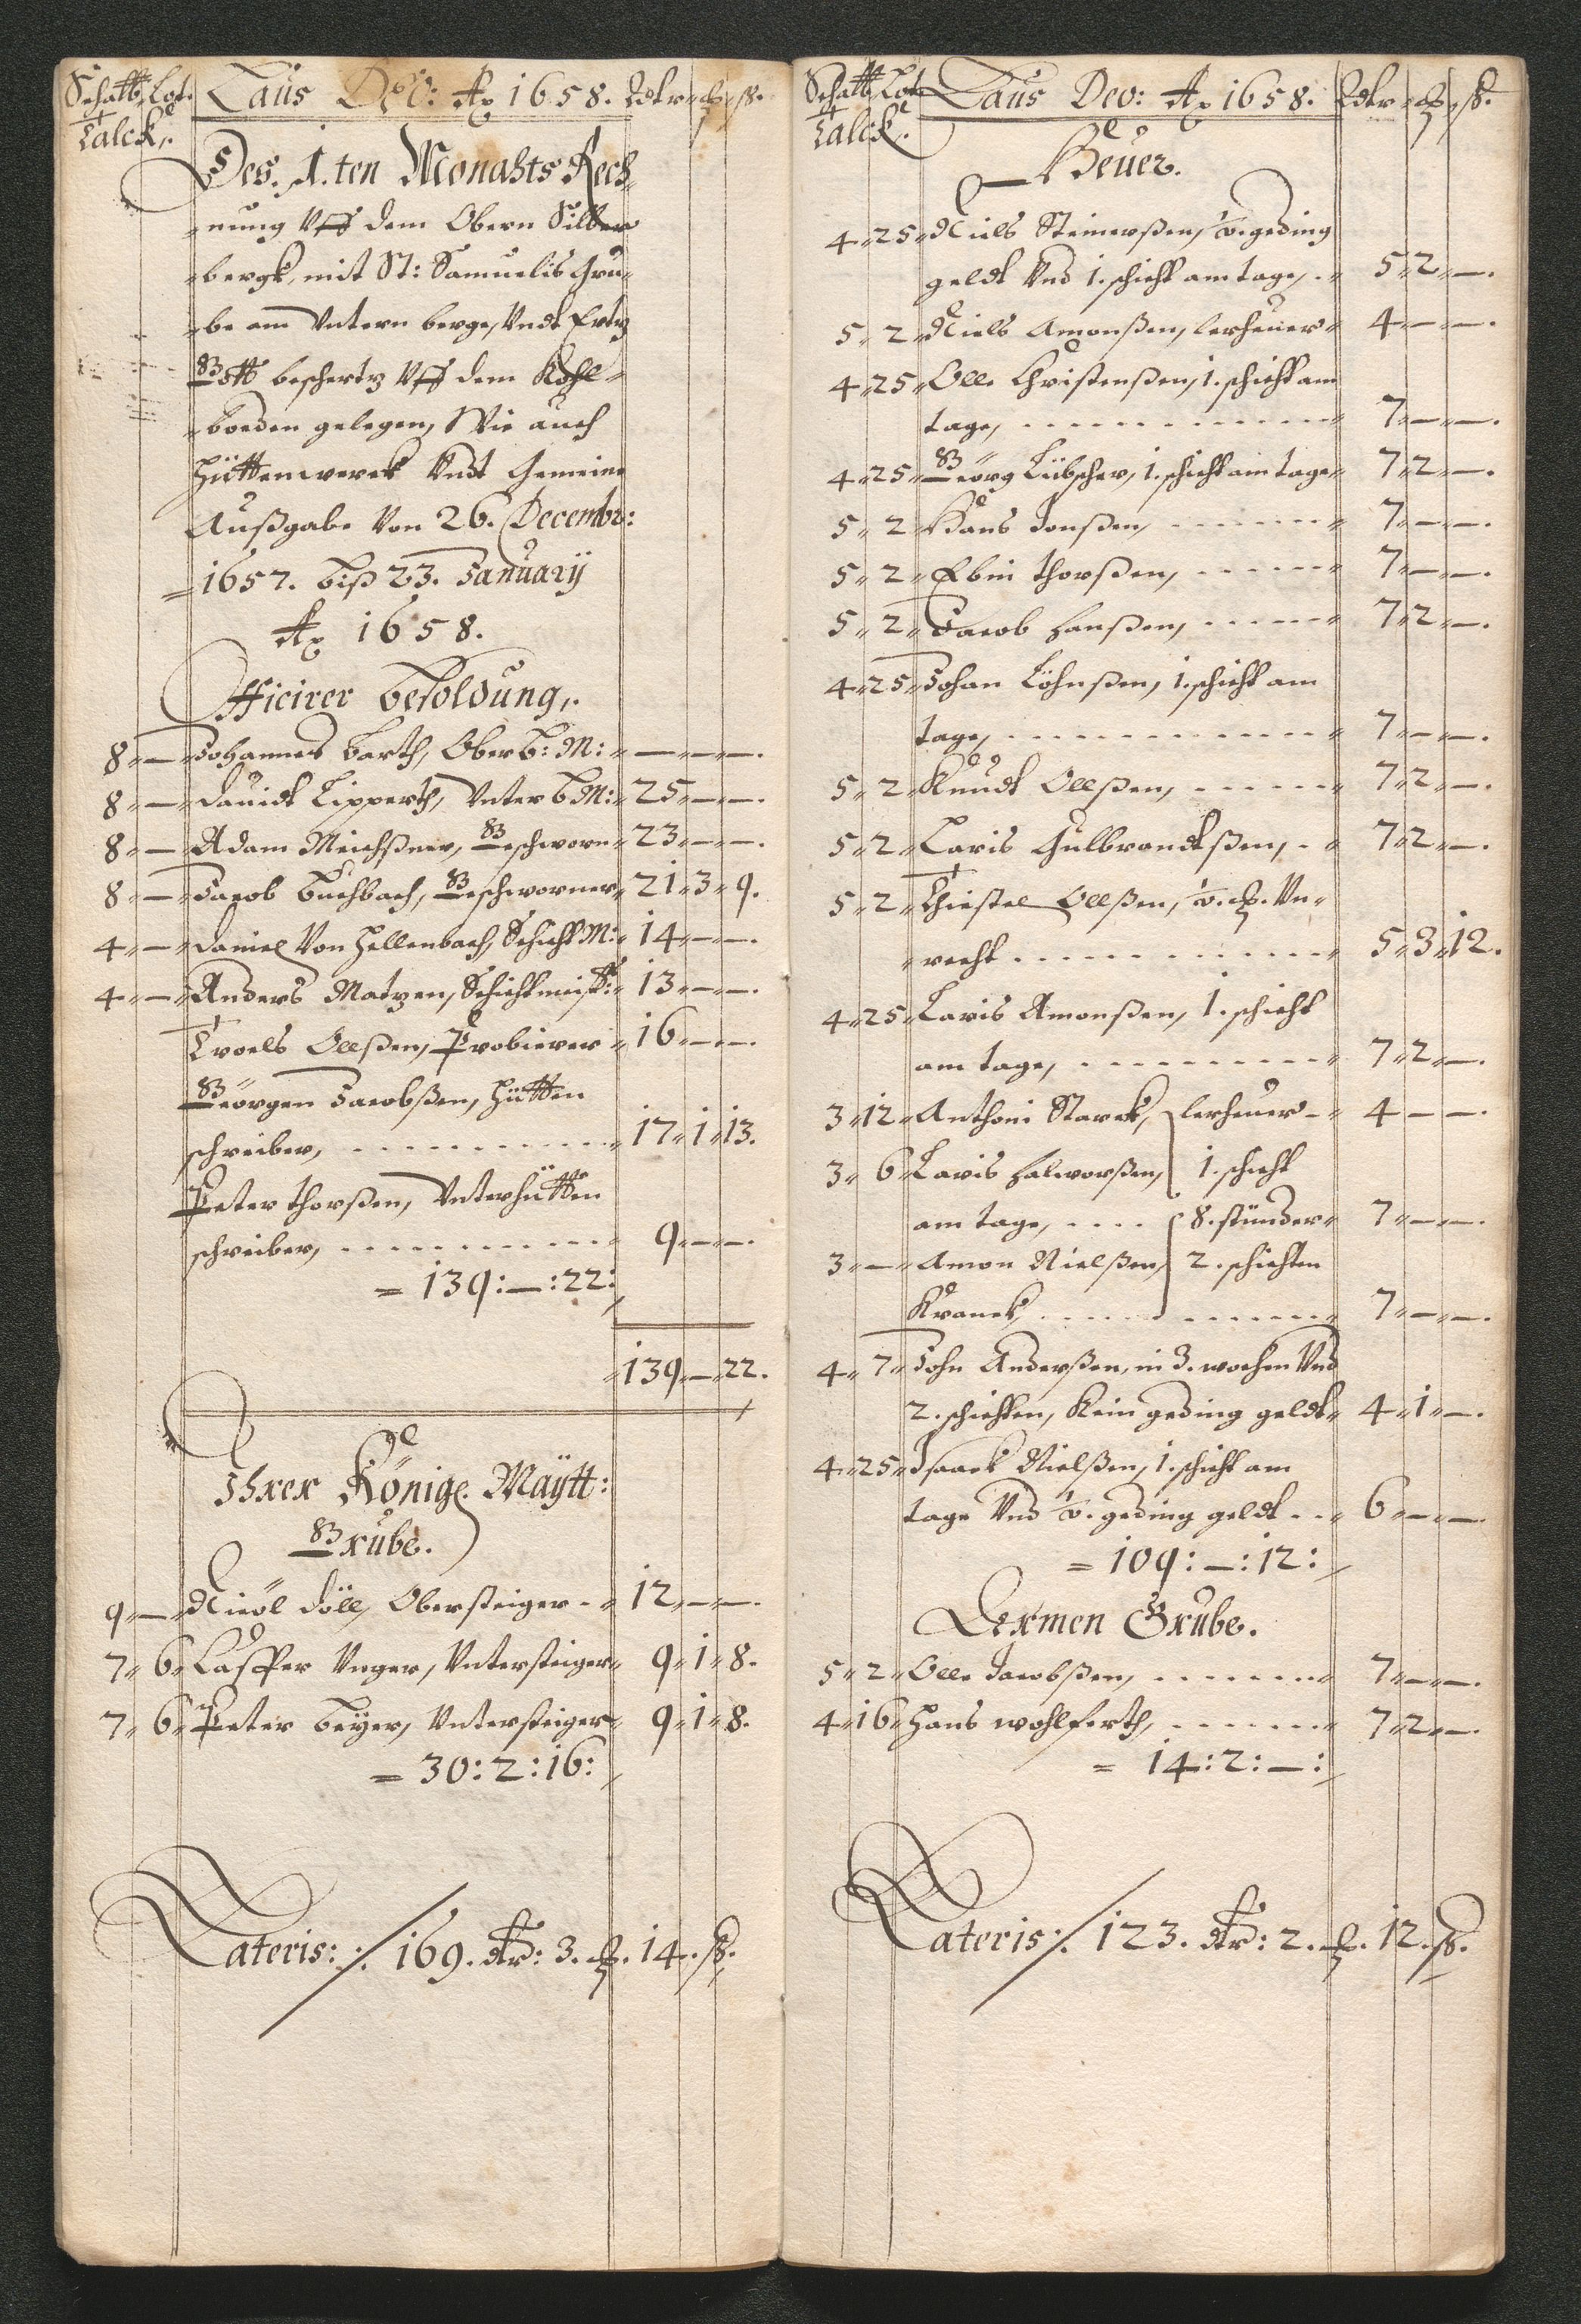 Schaltb Lot. Laus Deo: Ao 1658. Rdtr ß.
Talck.
Des. 1.ten Monahts Rech-
nung Vff dem Obern Silber
bergk, mit St: Samuelis Gru-
be am Vntern berge, Vndt Ertz
Gott beschertz Vff dem Kohl-
boeden gelegen, Wie auch
Hüttenwerck Vndt Gemeine
Außgabe Von 26. Decembr:
1657. biß 23. January
Ao 1658.
Officirer besoldung.
8 — Johannes Barth, Ober B: M: — — —.
8 — Dauidt Lipperth, Vnter B M: 25 — —.
8 — Adam Meichßner, Geschworn 23 — —.
8 — Jacob Buchbach, Geschworner 21 3 9.
4 — Daniel Von Hellenbach, Schicht M: 14 — —.
4 — Anders Matzen, Schichtmeist: 13 — —.
Troels Olsßen, Probierer 16 — —.
Geörgen Jacobßen, Hütten
schreiber, 17 1 13.
Peter Thorßen, Vnterhütten
schreiber, 9 — —.
= 139: — : 22:
139 — 22.
Ihrer Königl. Maytt:
Grube.
9 — Nicol Döll, Obersteiger 12 — —.
7 6 Casper Unger, Vntersteiger 9 1 8.
7 6 Peter Beyer, Vntersteiger 9 1 8.
= 30: 2: 16:
Lateris: /: 169. dtr: 3. 14. ß.
Schaltb Lot Laus Deo: Ao 1658. Rdtr ß.
Talck.
Heuer.
4 25 Niels Steinerßen, geding
geldt Vnd 1. schicht am tage, 5 2 —.
5 2 Niels Amonßen, lerheuer 4 — —.
4 25 Olle Christenßen, 1. schicht am
tage, 7 — —.
4 25 Geörg Lübscher, 1. schicht am tage 7 2 —.
5 2 Hans Jonßen, 7 — —.
5 2 Ebin Thorßen, 7 — —.
5 2 Jacob Hanßen, 7 2 —.
4 25 Johan Löhnßen, 1. schicht am
tage, 7 — —.
5 2 Knudt Ollßen, 7 2 —.
5 2 Laris Gulbrandtßen, 7 2 —.
5 2 Christel Ollßen, Vn-
recht 5 3 12.
4 25 Laris Amonßen, 1. schicht
am tage, 7 2 —.
3 12 Anthoni Starck, lerheuer 4 — —.
3 6 Laris Halworßen, 1. schicht
am tage, 8. stünder 7 — —.
3 — Amon Nielßen, 2. schichten
Kranck 7 — —.
4 7 John Anderßen, in 3. wochen Vnd
2. schichten, Kein geding geldt 4 1 —.
4 25 Isaack Nielßen, 1. schicht am
tage Vnd geding geldt 6 — —.
= 109: — : 12:
Lexmen Grube.
5 2 Olle Jacobßen, 7 — —.
4 16 Hans wohlferth, 7 2 —.
= 14: 2: — :
Lateris: /: 123. dtr: 2. 12. ß.